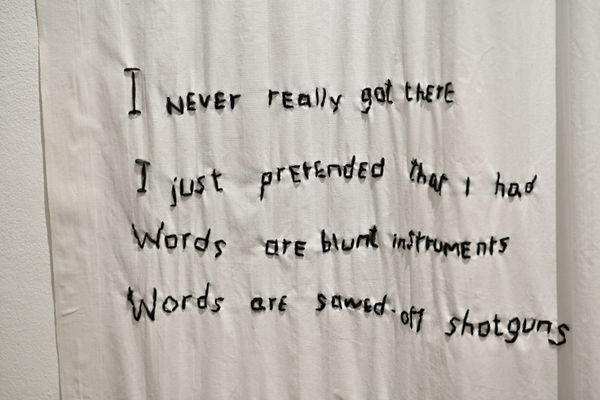 I NEVER rEally got thErE
I just prEtEndEd that I had
Words arE blunt instrumEnts
Words arE sawEd-off shotguns